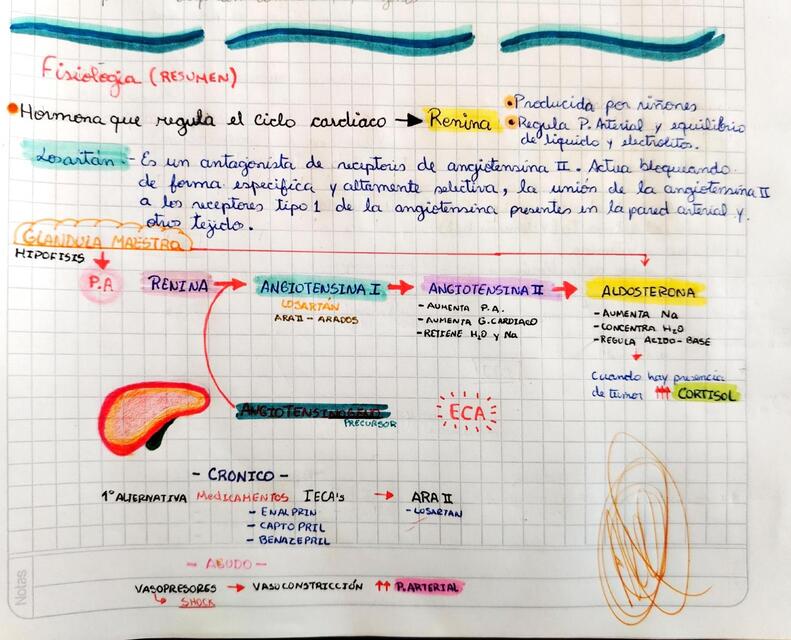 Fisiología (RESUMEN)
Hormona que regula el ciclo cardiaco → Renina
Producida por riñones
Regula P. Arterial y equilibrio
de líquido y electrolitos.
Losartán.- Es un antagonista de receptoris de angiotensina II. Actua bloqueando
de forma especifica y altamente selectiva, la unión de la angiotensina II
a los receptores tipo 1 de la angiotensina presentes en la pared arterial y
otros tejido.
GLANDULA MAESTRA
HIPOFISIS
P.A RENINA → ANGIOTENSINA I → ANGIOTENSINA II → ALDOSTERONA
LOSARTÁN
ARA II - ARADOS
- AUMENTA P.A.
- AUMENTA G.CARDIACO
- RETIENE H₂O y Na
- AUMENTA Na
- CONCENTRA H₂O
- REGULA ACIDO-BASE
Cuando hay presencia
de tumor ↑↑↑ CORTISOL
ANGIOTENSINOGENO
PRECURSOR
ECA
- CRONICO -
1° ALTERNATIVA MEDICAMENTOS IECA's → ARA II
- ENALPRIN
- CAPTOPRIL
- BENAZEPRIL
- LOSARTAN
- AGUDO -
VASOPRESORES → VASOCONSTRICCIÓN ↑↑ P.ARTERIAL
↳ SHOCK
Notas